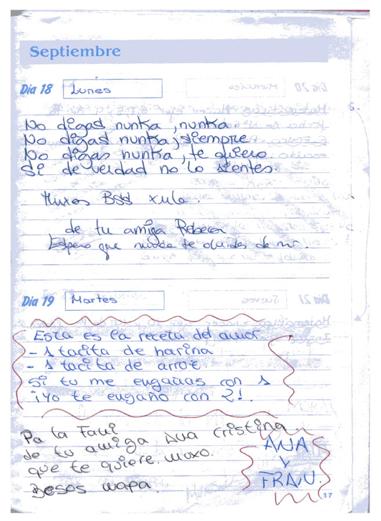 Septiembre
Día 18 Lunes
No digas nunka, nunka
No digas nunka, siempre
No digas nunka, te quiero.
Si de verdad no lo sientes.
Muxos Bss xula.
de tu amiga Rebeca
Espero que nunca te olvides de mi.
Día 19 Martes
Esta es la receta del amor
- 1 tacita de harina
- 1 tacita de arroz
Si tu me engañas con 1
¡Yo te engaño con 2!.
Pa la Fani
de tu amiga Ana Cristina
que te quiere muxo.
Besos wapa.
ANA
Y
FRAN.
17